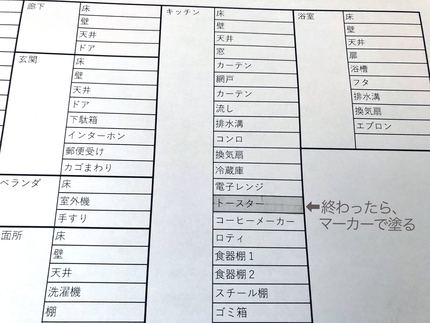 廊下
床
壁
天井
ドア
玄関
床
壁
天井
ドア
下駄箱
インターホン
郵便受け
カゴまわり
ベランダ
床
室外機
手すり
面所
床
壁
天井
洗濯機
棚
キッチン
床
壁
天井
窓
カーテン
網戸
カーテン
流し
排水溝
コンロ
換気扇
冷蔵庫
電子レンジ
トースター
コーヒーメーカー
ロティ
食器棚1
食器棚2
スチール棚
ゴミ箱
浴室
床
壁
天井
扉
浴槽
フタ
排水溝
換気扇
エプロン
⬅終わったら、
マーカーで塗る